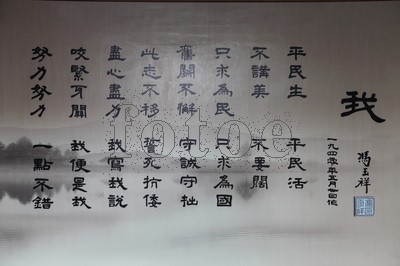 我
馮玉祥
一九四零年五月卅日作
平民生 平民活
不講美 不要闊
只求為民 只求為國
奮鬭不懈 守誠守拙
此志不移 誓死抗倭
盡心盡力 我寫我說
咬緊牙關 我便是我
努力努力 一點不錯
fotoe